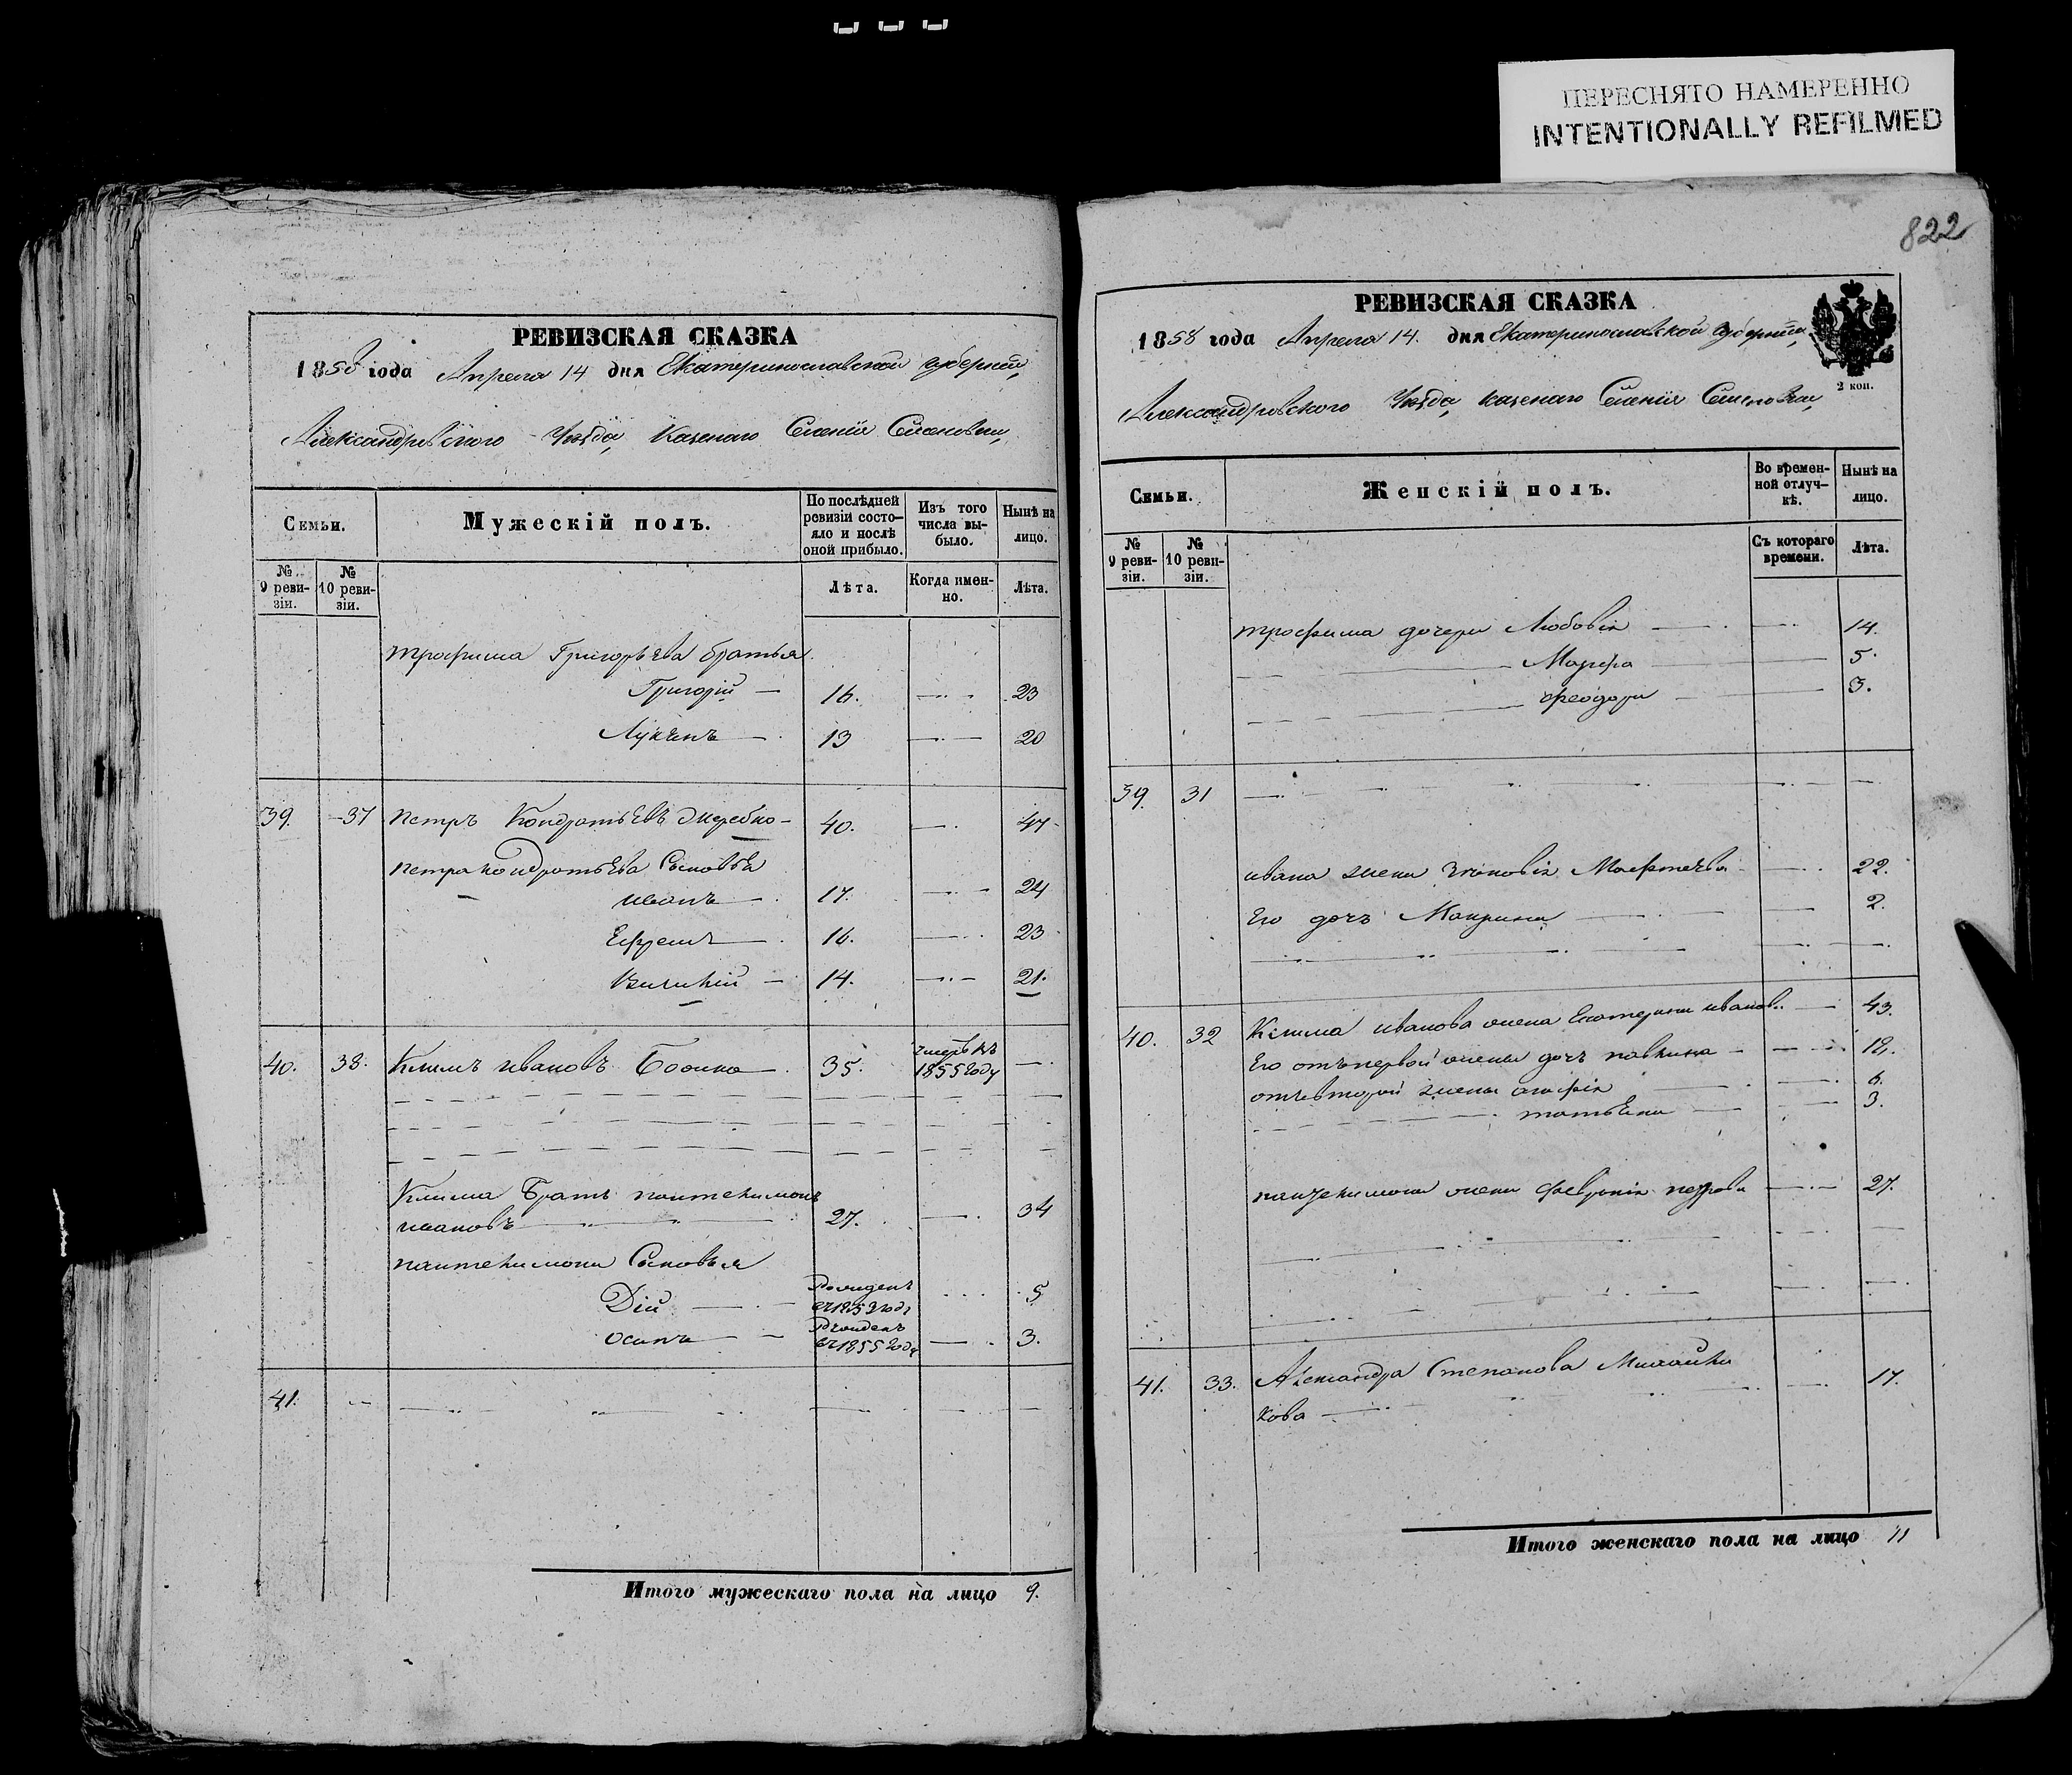 ПЕРЕСНЯТО НАМЕРЕННО
INTENTIONALLY REFILMED
822
РЕВИЗСКАЯ СКАЗКА
1858 года Апреля 14 дня Екатеринославской губернии,
Александровского Уезда, Казенаго Селенія
Семьи.
Мужескій полъ.
По послѣдней ревизіи состо-
яло и послѣ оной прибыло.
Изъ того числа вы-
было.
Нынѣ на лицо.
№ 9 реви-
зіи.
№ 10 реви-
зіи.
Лѣта.
Когда имен-
но.
Лѣта.
Трофима Григорьева братья
Григорій 16. 23
13 20
39. 37 Петръ Кондратьевъ 40. 47
Петра Кондратьева Сыновья
Иванъ 17. 24
Ефремъ 16. 23
14. 21.
40. 38. Климъ Ивановъ 35. умеръ въ
1855 году
Клима Братъ Пантелимонъ
Ивановъ 27. 34
Пантелимона Сыновья
Дій Рожденъ
въ 1853 годе 5
Осипъ Рожденъ
въ 1855 годе 3.
41.
Итого мужескаго пола на лицо 9.
РЕВИЗСКАЯ СКАЗКА
1858 года Апреля 14. дня Екатеринославской губерніи,
2 коп.
Александровского Уезда, казенаго Селенія
Семьи.
Женскій полъ.
Во времен-
ной отлуч-
кѣ.
Нынѣ на лицо.
№ 9 реви-
зіи.
№ 10 реви-
зіи.
Съ котораго времени.
Лѣта.
Трофима дочери Любовія 14.
Марфа 5.
Феодора 3.
39 31
Ивана жена 22.
Его дочь Макрина 2.
40. 32 Клима Иванова жена Екатерина Иванов. 43.
Его отъ первой жены дочь 12.
отъ второй жены Агафія 6.
Татьяна 3.
Пантелимона жена Февронія Петрова 27.
41. 33. Александра Степанова 17.
кова
Итого женскаго пола на лицо 11